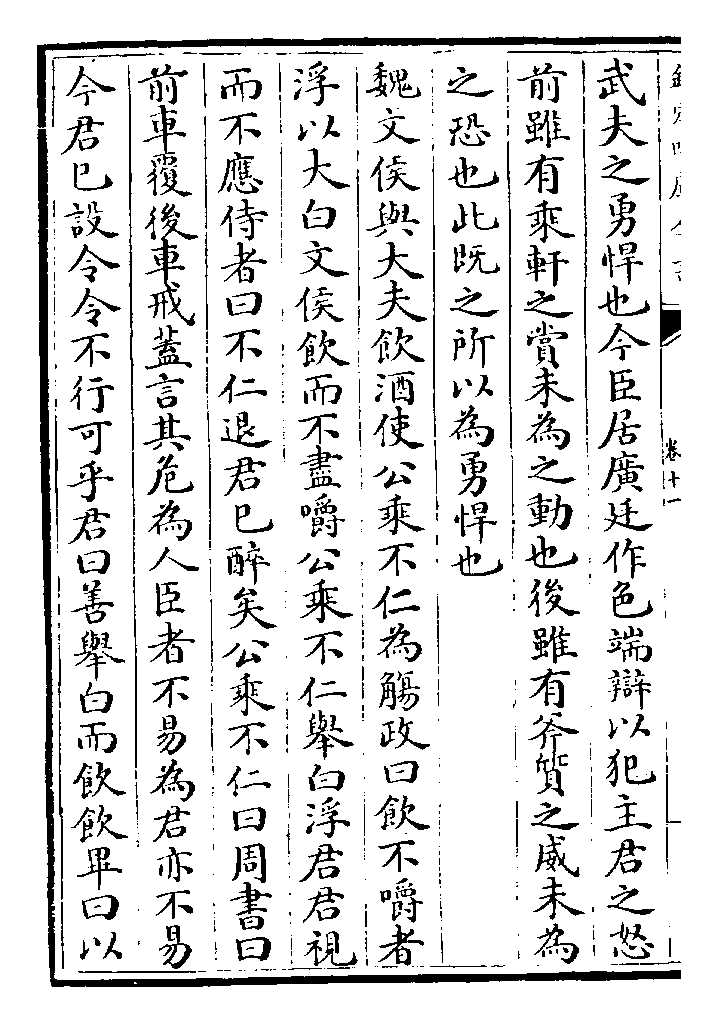 武夫之勇悍也今臣居廣廷作色端辯以犯主君之怒
前雖有乘軒之賞未為之動也後雖有斧質之威未為
之恐也此既之所以為勇悍也
魏文侯與大夫飲酒使公乘不仁為觴政曰飲不嚼者
浮以大白文侯飲而不盡嚼公乘不仁舉白浮君君視
而不應侍者曰不仁退君已醉矣公乘不仁曰周書曰
前車覆後車戒葢言其危為人臣者不易為君亦不易
今君已設令令不行可乎君曰善舉白而飲飲畢曰以
卷十一